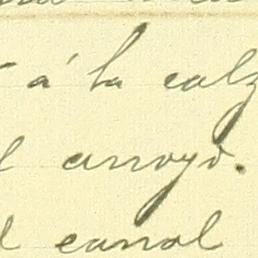 á la calz
arroyo.
canal